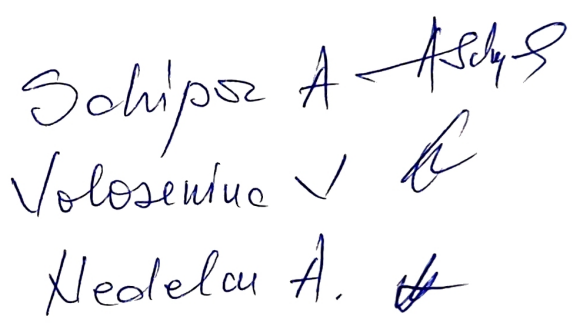 Schipor A
Voloseniuc V
Nedelcu A.